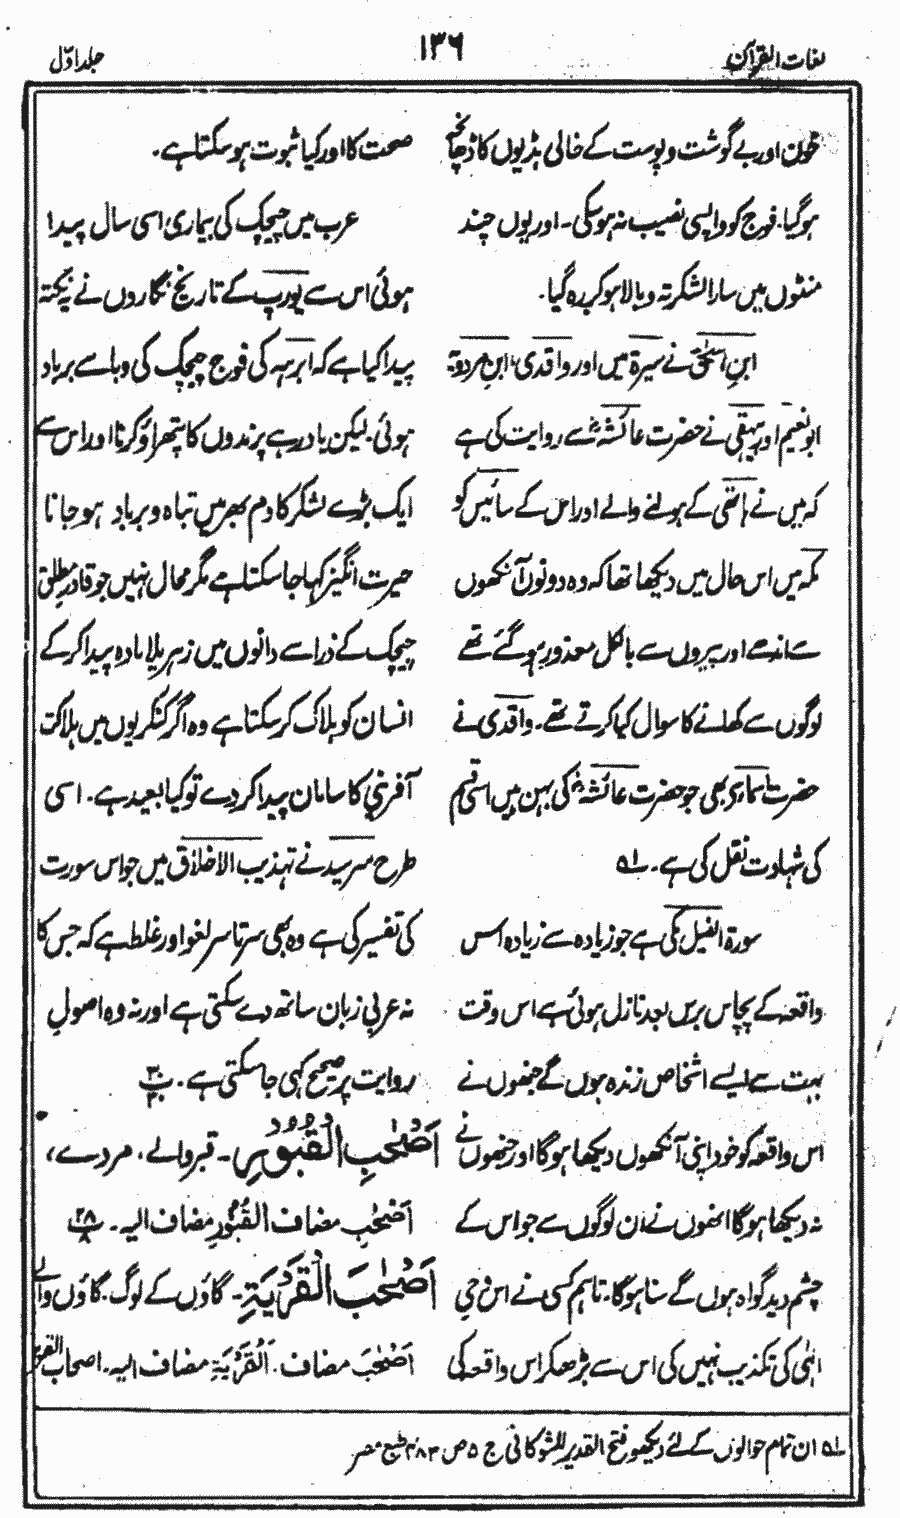 لغات القرآن
۱۳۶
جلد اوّل
خون اور بے گوشت و پوست کے خالی ہڈیوں کا ڈھانچہ
ہوگیا۔ فوج کو واپسی نصیب نہ ہوسکی۔ اور یوں چند
منٹوں میں سارا لشکر تہ و بالا ہوکر رہ گیا۔
ابنِ اسحٰق نے سیرۃ میں اور واقدی، ابنِ مردویہ
ابو نعیم اور بیہقی نے حضرت عائشہؓ سے روایت کی ہے
کہ میں نے ہاتھی کے ہولنے والے اور اس کے سائیس کو
مکہ میں اس حال میں دیکھا تھا کہ وہ دونوں آنکھوں
سے اندھے اور پیروں سے بالکل معذور ہوگئے تھے
لوگوں سے کھانے کا سوال کیا کرتے تھے۔ واقدی نے
حضرت اسماء کی بھی جو حضرت عائشہؓ کی بہن ہیں اسی قسم
کی شہادت نقل کی ہے۔ ؎۱
سورۃ الفیل مکی ہے جو زیادہ سے زیادہ اس
واقعہ کے پچاس برس بعد نازل ہوئی ہے اس وقت
بہت سے ایسے اشخاص زندہ ہوں گے جنھوں نے
اس واقعہ کو خود اپنی آنکھوں دیکھا ہوگا اور جنھوں نے
نہ دیکھا ہوگا انھوں نے ان لوگوں سے جو اس کے
چشم دید گواہ ہوں گے سنا ہوگا۔ تاہم کسی نے اس وحیِ
الٰہی کی تکذیب نہیں کی اس سے بڑھکر اس واقعہ کی
صحت کا اور کیا ثبوت ہوسکتا ہے۔
عرب میں چیچک کی بیماری اسی سال پیدا
ہوئی اس سے یورپ کے تاریخ نگاروں نے یہ نکتہ
پیدا کیا ہے کہ ابرہہ کی فوج چیچک کی وبا سے برباد
ہوئی۔ لیکن یاد رہے پرندوں کا پتھراؤ کرنا اور اس سے
ایک بڑے لشکر کا دم بھر میں تباہ و برباد ہوجانا
حیرت انگیز کہا جاسکتا ہے مگر محال نہیں جو قادرِ مطلق
چیچک کے ذرا سے دانوں میں زہریلا مادہ پیدا کرکے
انسان کو ہلاک کرسکتا ہے وہ اگر کنکریوں میں ہلاکت
آفرینی کا سامان پیدا کردے تو کیا بعید ہے۔ اسی
طرح سرسید نے تہذیب الاخلاق میں جو اس سورت
کی تفسیر کی ہے وہ بھی سرتاسر لغو اور غلط ہے کہ جس کا
نہ عربی زبان ساتھ دے سکتی ہے اور نہ وہ اصولِ
روایت پر صحیح کہی جاسکتی ہے۔
اَصْحٰبِ الْقُبُوْرِ۔ قبر والے، مردے،
اَصْحٰبِ مضاف الْقُبُوْرِ مضاف الیہ۔ ۲۸
اَصْحٰبَ الْقَرْیَۃِ۔ گاؤں کے لوگ۔ گاؤں والے
اَصْحٰبَ مضاف۔ اَلْقَرْیَۃِ مضاف الیہ۔ اصحاب القریۃ
؎۱ ان تمام حوالوں کے لئے دیکھو فتح القدیر للشوکانی ج ۵ ص ۴۸۳ طبع مصر